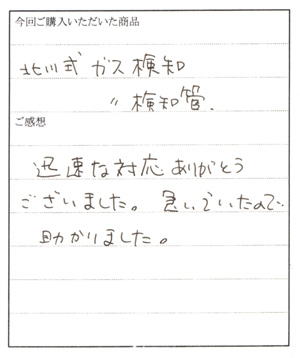 今回ご購入いただいた商品
北川式 ガス検知
〃 検知管.
ご感想
迅速な対応ありがとう
ございました。急いでいたので
助かりました。